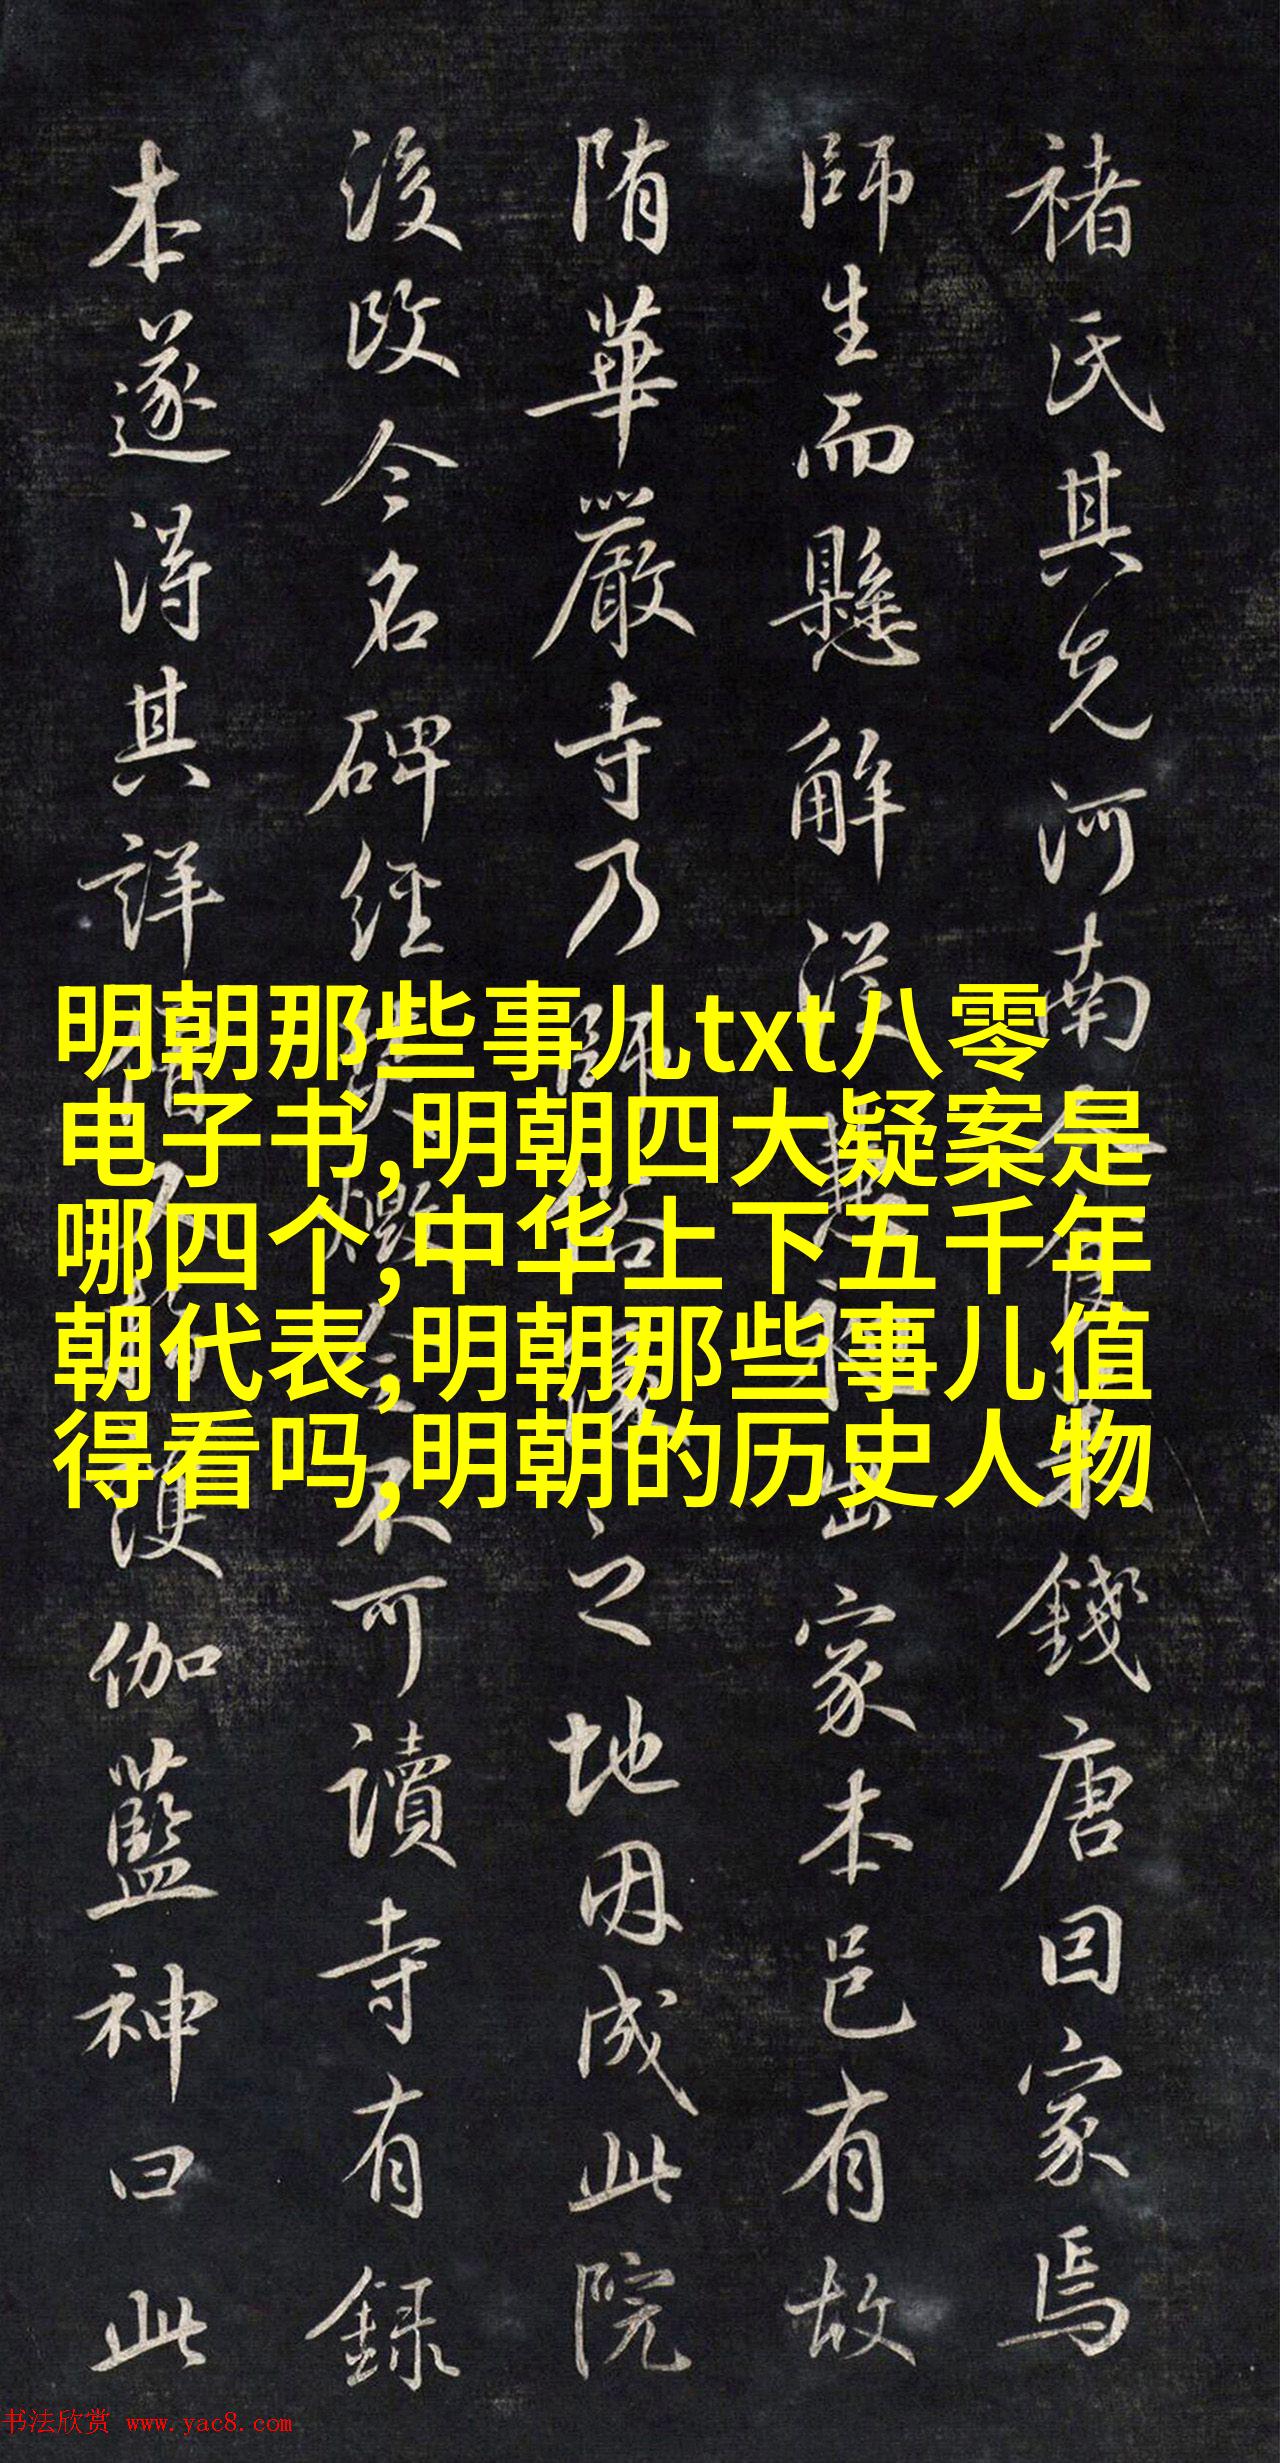 褚氏其先河南錢唐回家焉
師生而懸解出家本邑有故
隋華嚴寺乃師之地因成此院
後改今名碑經不可讀寺有録
本遂得其詳伽藍神曰此
明朝那些事儿txt八零
电子书,明朝四大疑案是
哪四个,中华上下五千年
朝代表,明朝那些事儿值
得看吗,明朝的历史人物
书法欣赏 www.yac8.com